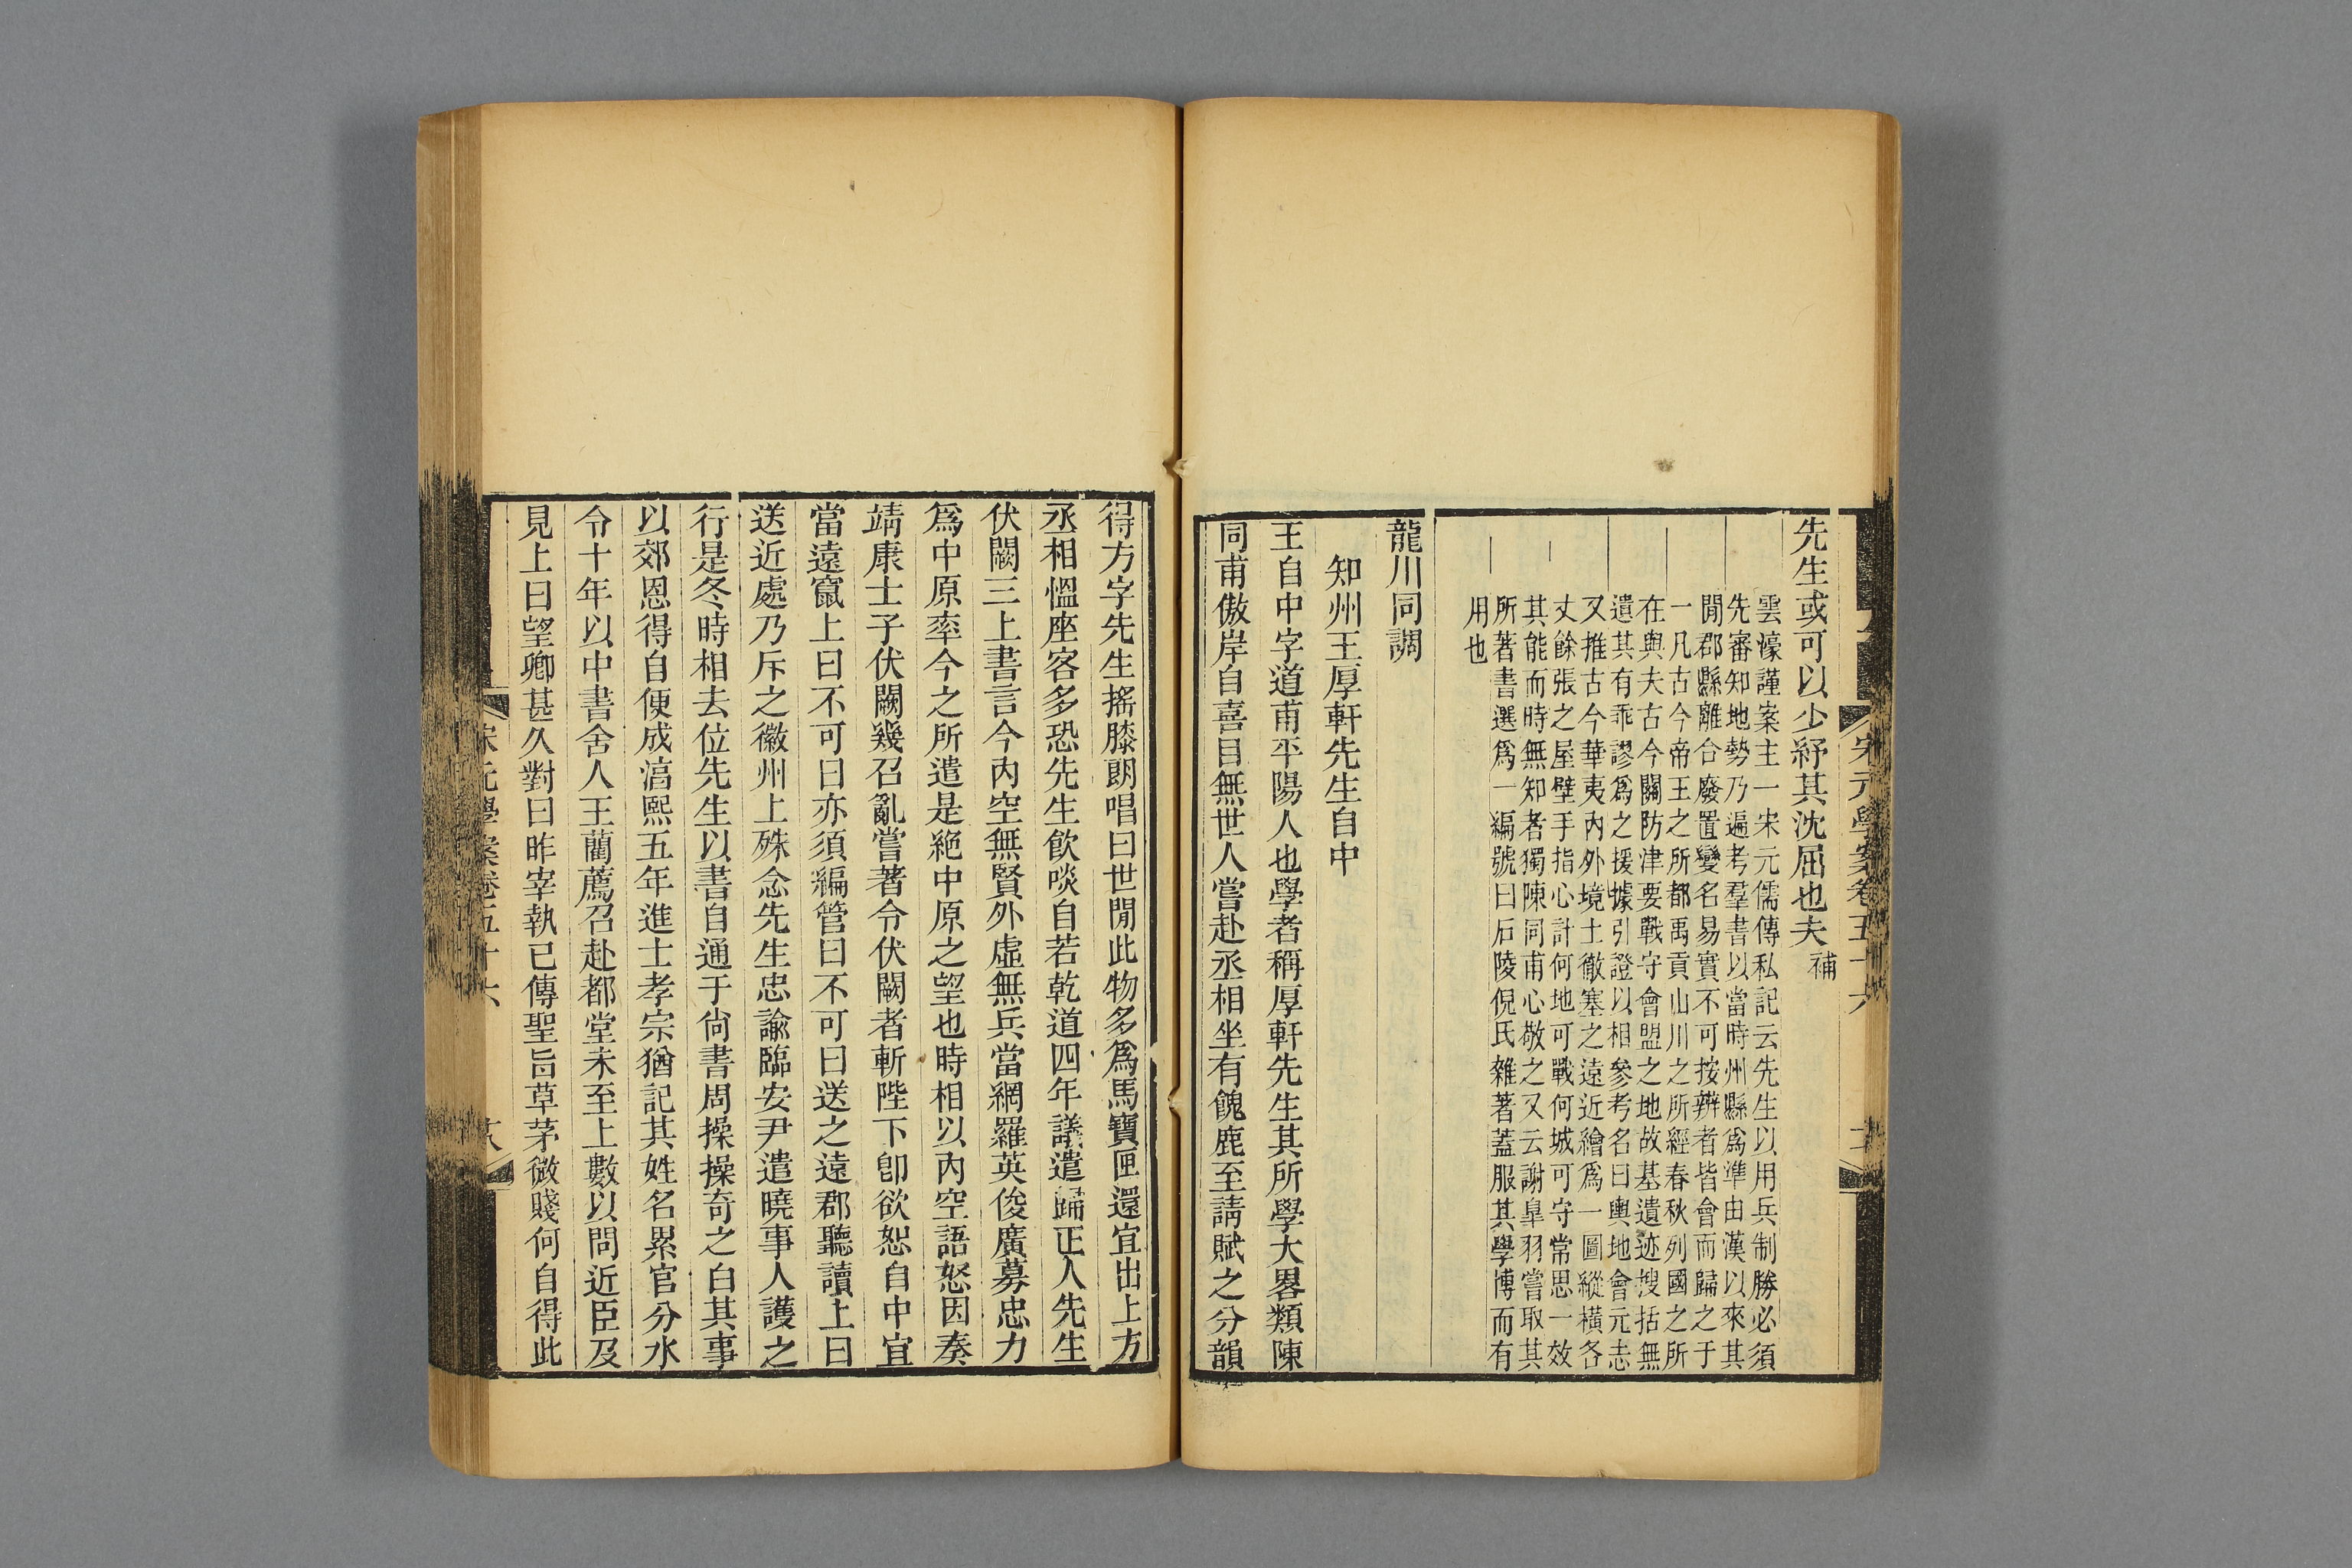 先生或可以少紓其沈屈也夫補
雲濠謹案主一宋元儒傳私記云先生以用兵制勝必須
先審知地勢乃遍考羣書以當時州縣爲準由漢以來其
閒郡縣離合廢置變名易實不可按辨者皆會而歸之于
一凡古今帝王之所都禹貢山川之所經春秋列國之所
在與夫古今關防津要戰守會盟之地故基遺迹搜括無
遺其有乖謬爲之援據引證以相參考名曰輿地會元志
又推古今華夷內外境土徹塞之遠近繪爲一圖縱橫各
丈餘張之屋壁手指心計何地可戰何城可守常思一效
其能而時無知者獨陳同甫心敬之又云謝臯羽嘗取其
所著書選爲一編號曰石陵倪氏雜著蓋服其學博而有
用也
龍川同調
知州王厚軒先生自中
王自中字道甫平陽人也學者稱厚軒先生其所學大畧類陳
同甫傲岸自喜目無世人嘗赴丞相坐有餽鹿至請賦之分韻
得方字先生搖膝朗唱曰世閒此物多爲馬寶匣還宜出上方
丞相愠座客多恐先生飲啖自若乾道四年議遣歸正人先生
伏闕三上書言今內空無賢外虛無兵當網羅英俊廣募忠力
爲中原率今之所遣是絕中原之望也時相以內空語怒因奏
靖康士子伏闕幾召亂嘗著令伏闕者斬陛下卽欲恕自中宜
當遠竄上曰不可曰亦須編管曰不可曰送之遠郡聽讀上曰
送近處乃斥之徽州上殊念先生忠諭臨安尹遣曉事人護之
行是冬時相去位先生以書自通于尙書周操操奇之白其事
以郊恩得自便成淳熙五年進士孝宗猶記其姓名累官分水
令十年以中書舍人王藺薦召赴都堂未至上數以問近臣及
見上曰望卿甚久對曰昨宰執已傳聖旨草茅微賤何自得此
宋元學案卷五十六